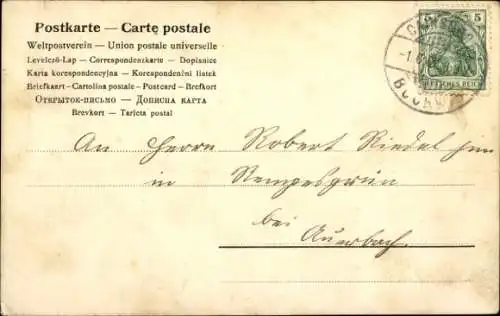 Postkarte — Carte postale
Weltpostverein — Union postale universelle
Levelező-Lap — Correspondenzkarte — Dopisnice
Karta korespondencyjna — Korespondenční lístek
Briefkaart — Cartolina postale — Postcard — Brefkort
Открытое письмо — Дописна карта
Brevkort — Tarjeta postal
5
DEUTSCHES REICH
An Herrn Robert Riedel jun
in Rempesgrün
bei
Auerbach.